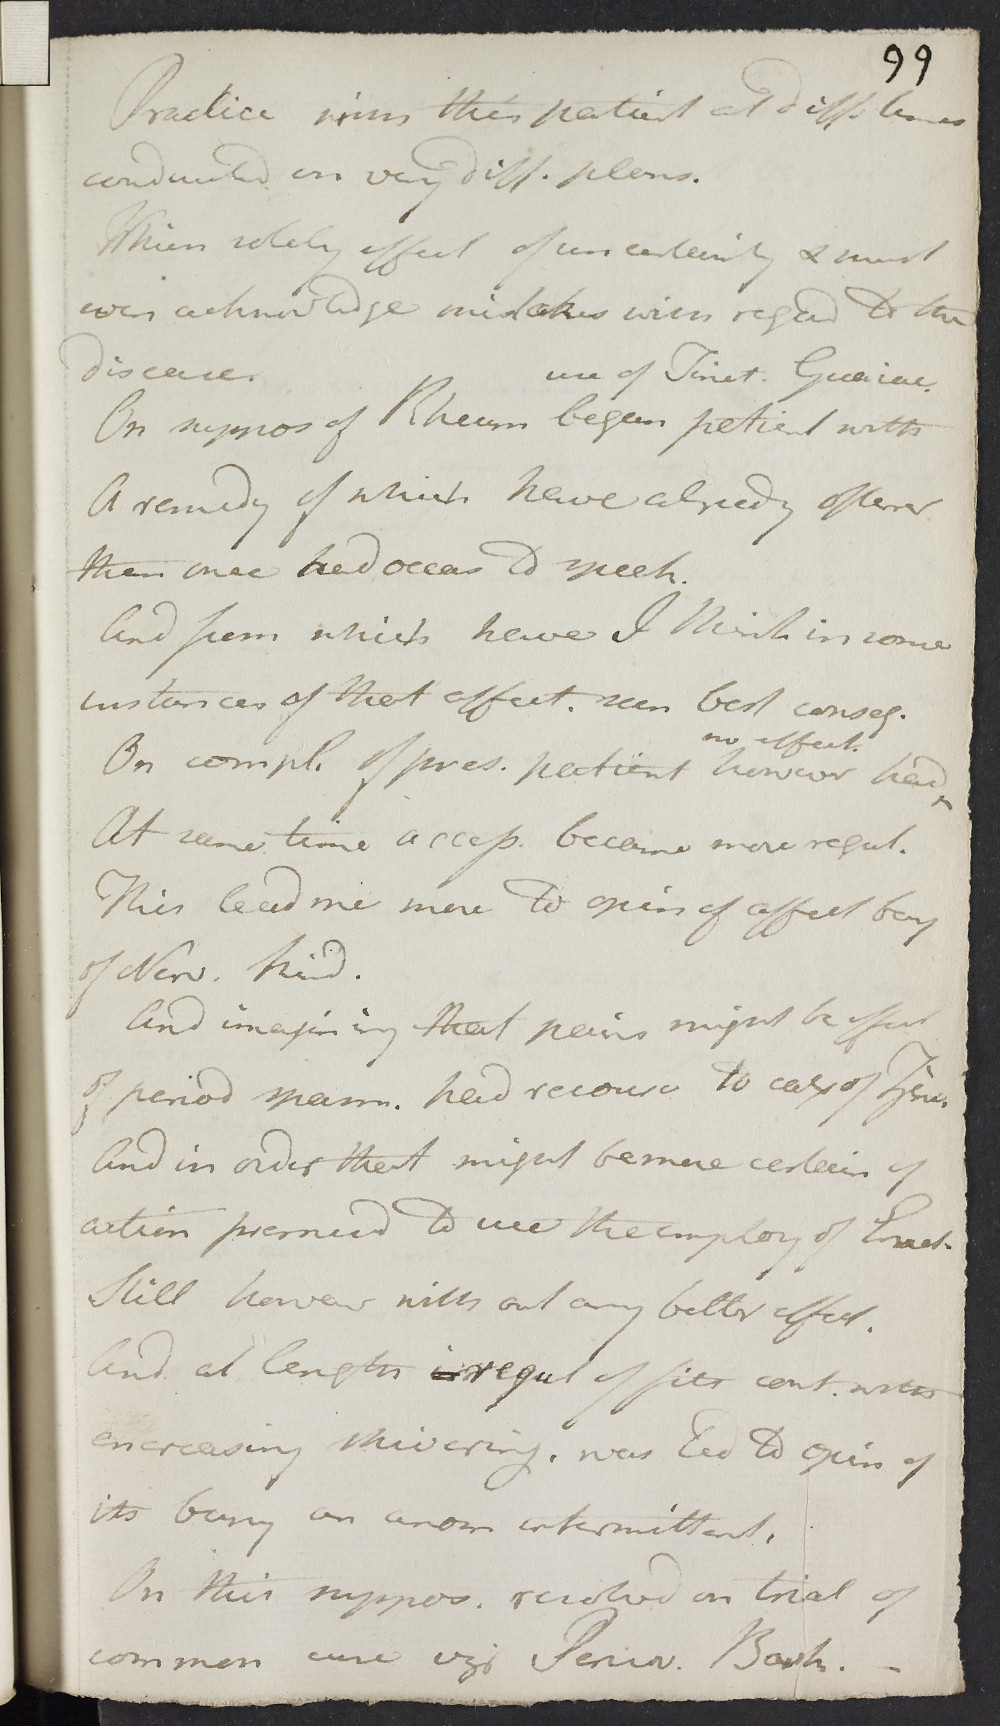 99
Practice with this patient at diff. times
conducted on very diff. plans.
This solely effect of uncertainty & must
even acknowledge mistakes with regard to the
disease.
On suppos of Rheum began patient with
use of Tinct. Guaiac.
A remedy of which have already oftener
than once had occas to speak.
And from which have I think in some
instances of that affect. seen best conseq.
On compl. of pres. patient however had
no effect.
At same time access. became more regul.
This lead me more to opin of affect being
of Nerv. kind.
And imagining that pains might be effect
of period spasm. had recourse to calx of Zinc.
And in order that might be more certain of
action premised to use the employ of Emet.
Still however with out any better effect.
And at length regul of fits cont. with
encreasing shivering. was led to opin of
its being an anom intermittent.
On this suppos. resolved on trial of
common cure viz Peruv. Bark. -